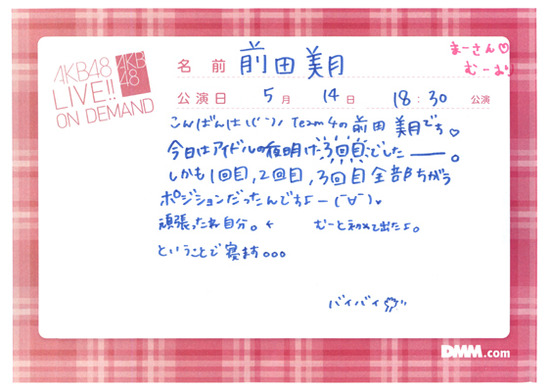 AKB48
LIVE!!
ON DEMAND
AKB
48
名前 前田美月
まーさん♡
むーより
公演日 5月 14日 18:30 公演
こんばんは\(^^)/ Team4の前田美月です♡
今日はアイドルの夜明け3回目でしたーー。
しかも1回目,2回目,3回目全部ちがう
ポジションだったんですよー(¯∀¯)
頑張ったね自分。← むーと初めて出たよ。
ということで寝ます。。。
バイバイ
DMM.com